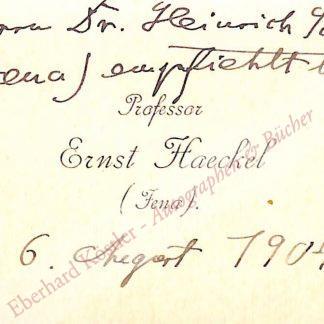 Dr. Heinrich
empfiehlt
Professor
Ernst Haeckel
(Jena).
6. August 1904
Eberhard Köstler - Autographen & Bücher